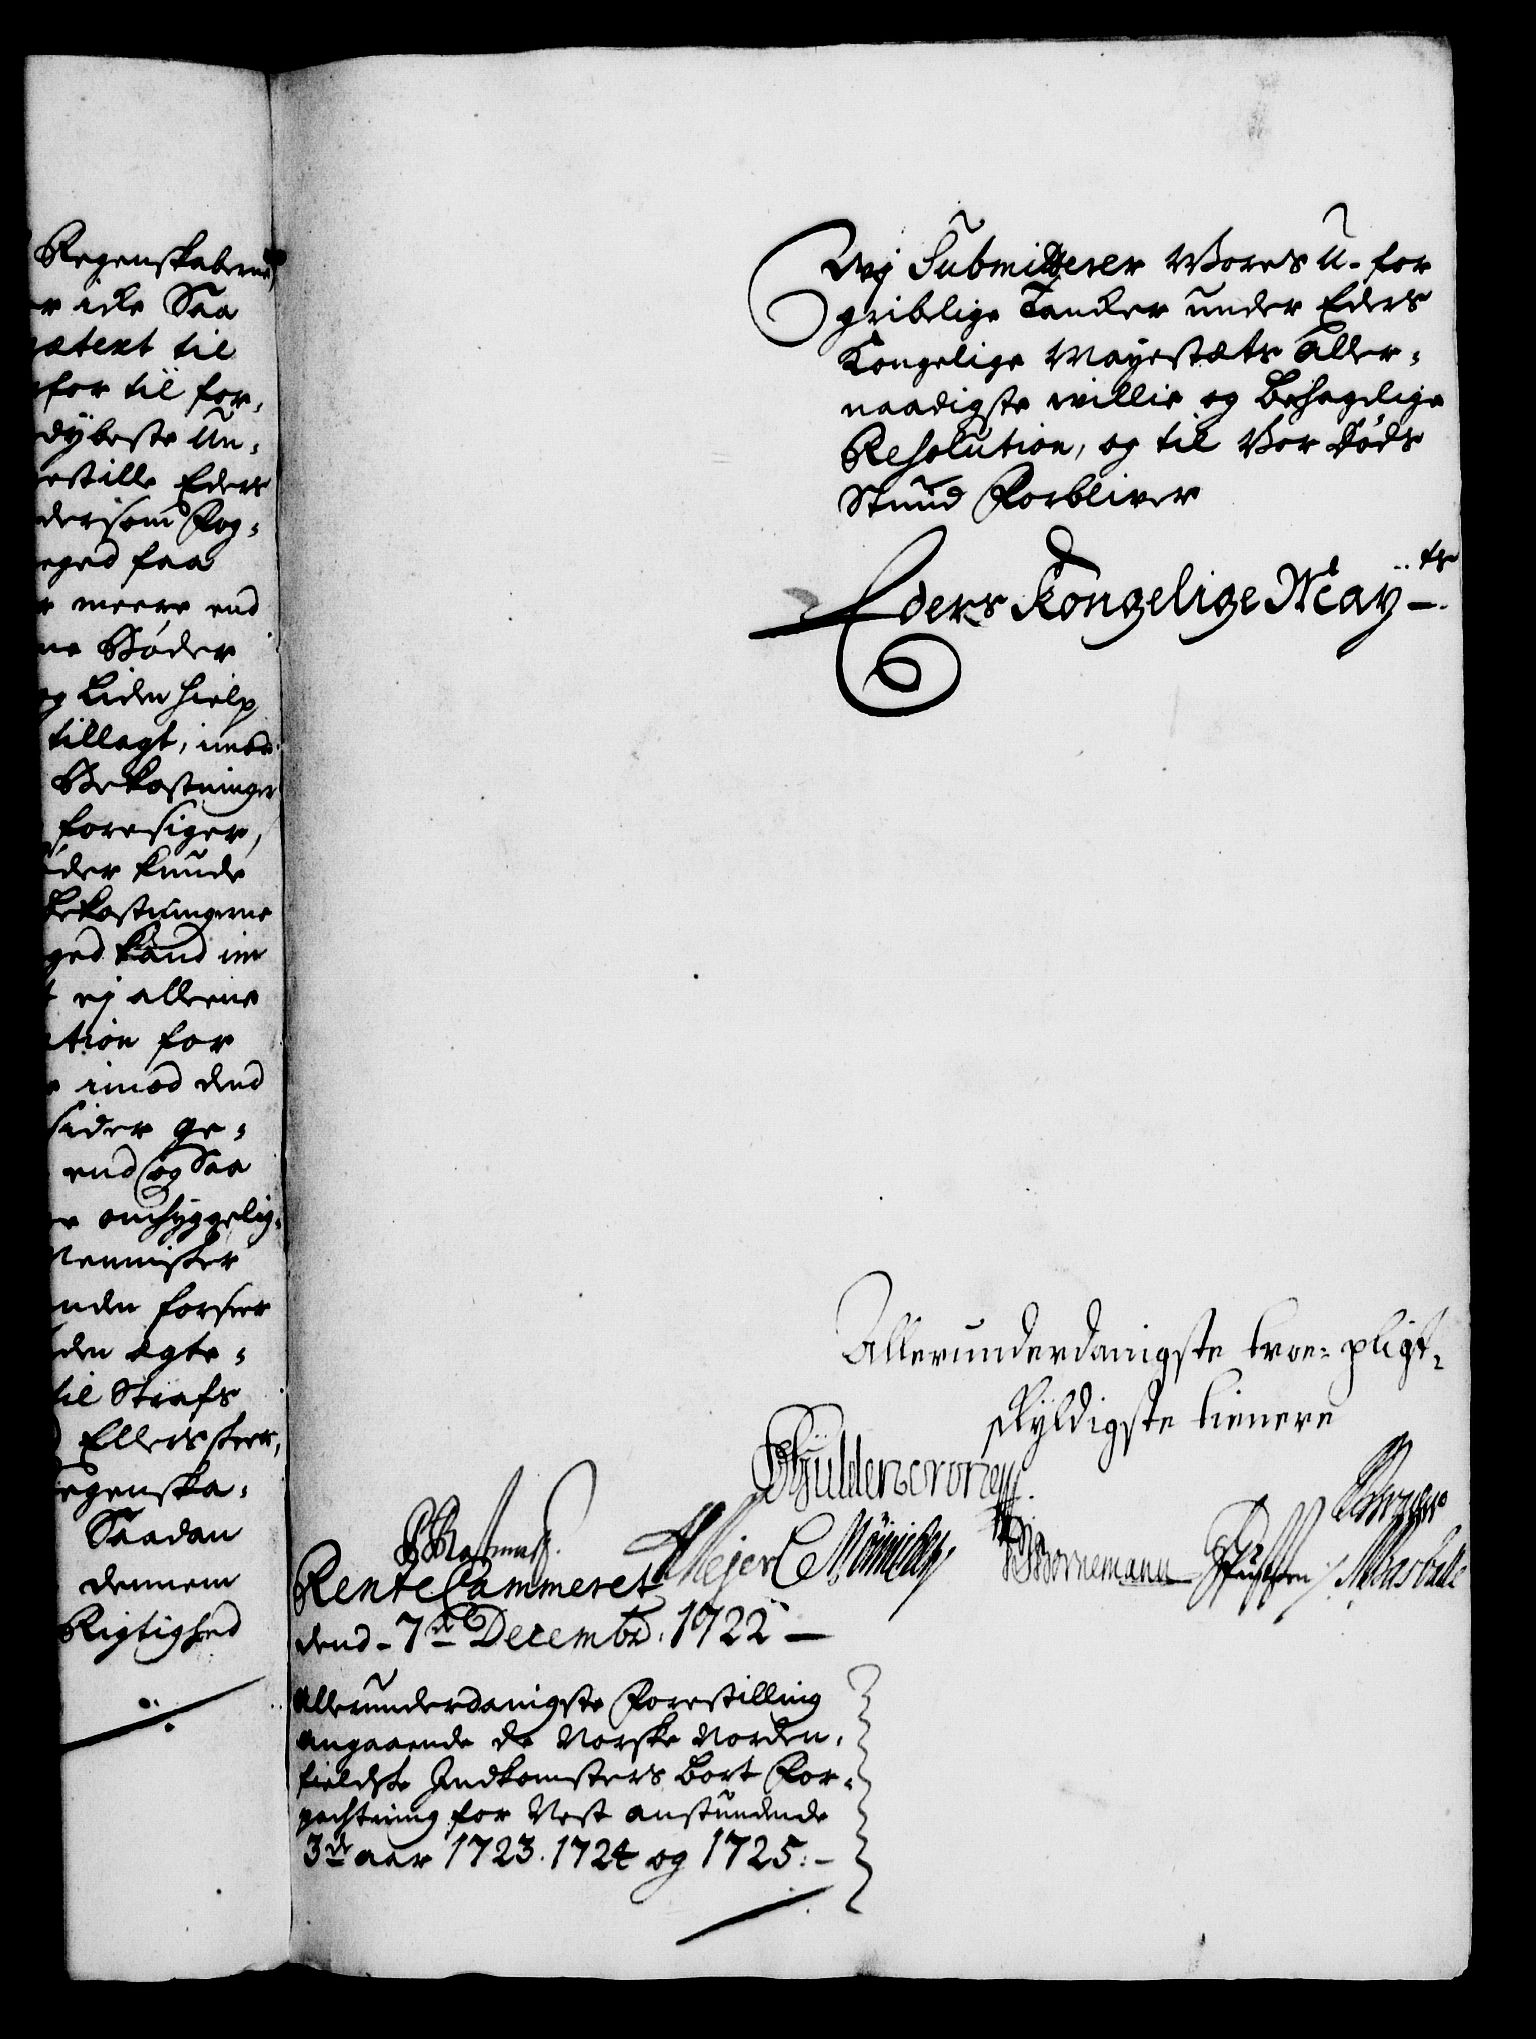 Regenskaberne
r icke Saa
ætext til
for til for,
dybeste Un,
estille Eders
dersom Fog,
eged faa
meere end
ne Bøder
og Liden hielp
tillagt, imod
Bekostninger
foresiger,
der kunde
Bekostningerne
ged kand im
t ej alleene
ation for
imod dend
sider ge,
end og Saa
omhyggelig,
Mennisker
nden forseer
den agte,
til Strafs
Ellers skeer,
egenska,
Saadan
dennem
Rigtighed
Wj Submitterer Vores U-for
gribelige Tancker under Eders
Kongelige Mayestæts Aller,
naadigste willie og Behagelige
Resolution, og til Vor Døds
Stund Forbliver
Eders Kongelige May.ts
Allerunderdanigste troe- pligt,
skyldigste tienere
Gyldencrone
Meyer C Bornemann
RenteCammeret
dend 7de Decembr. 1722
Allerunderdanigste Forestilling
angaaende de Norske Norden,
fieldske Indkomsters bort For,
pachtning for Nest anstundende
3de aar 1723. 1724 og 1725.